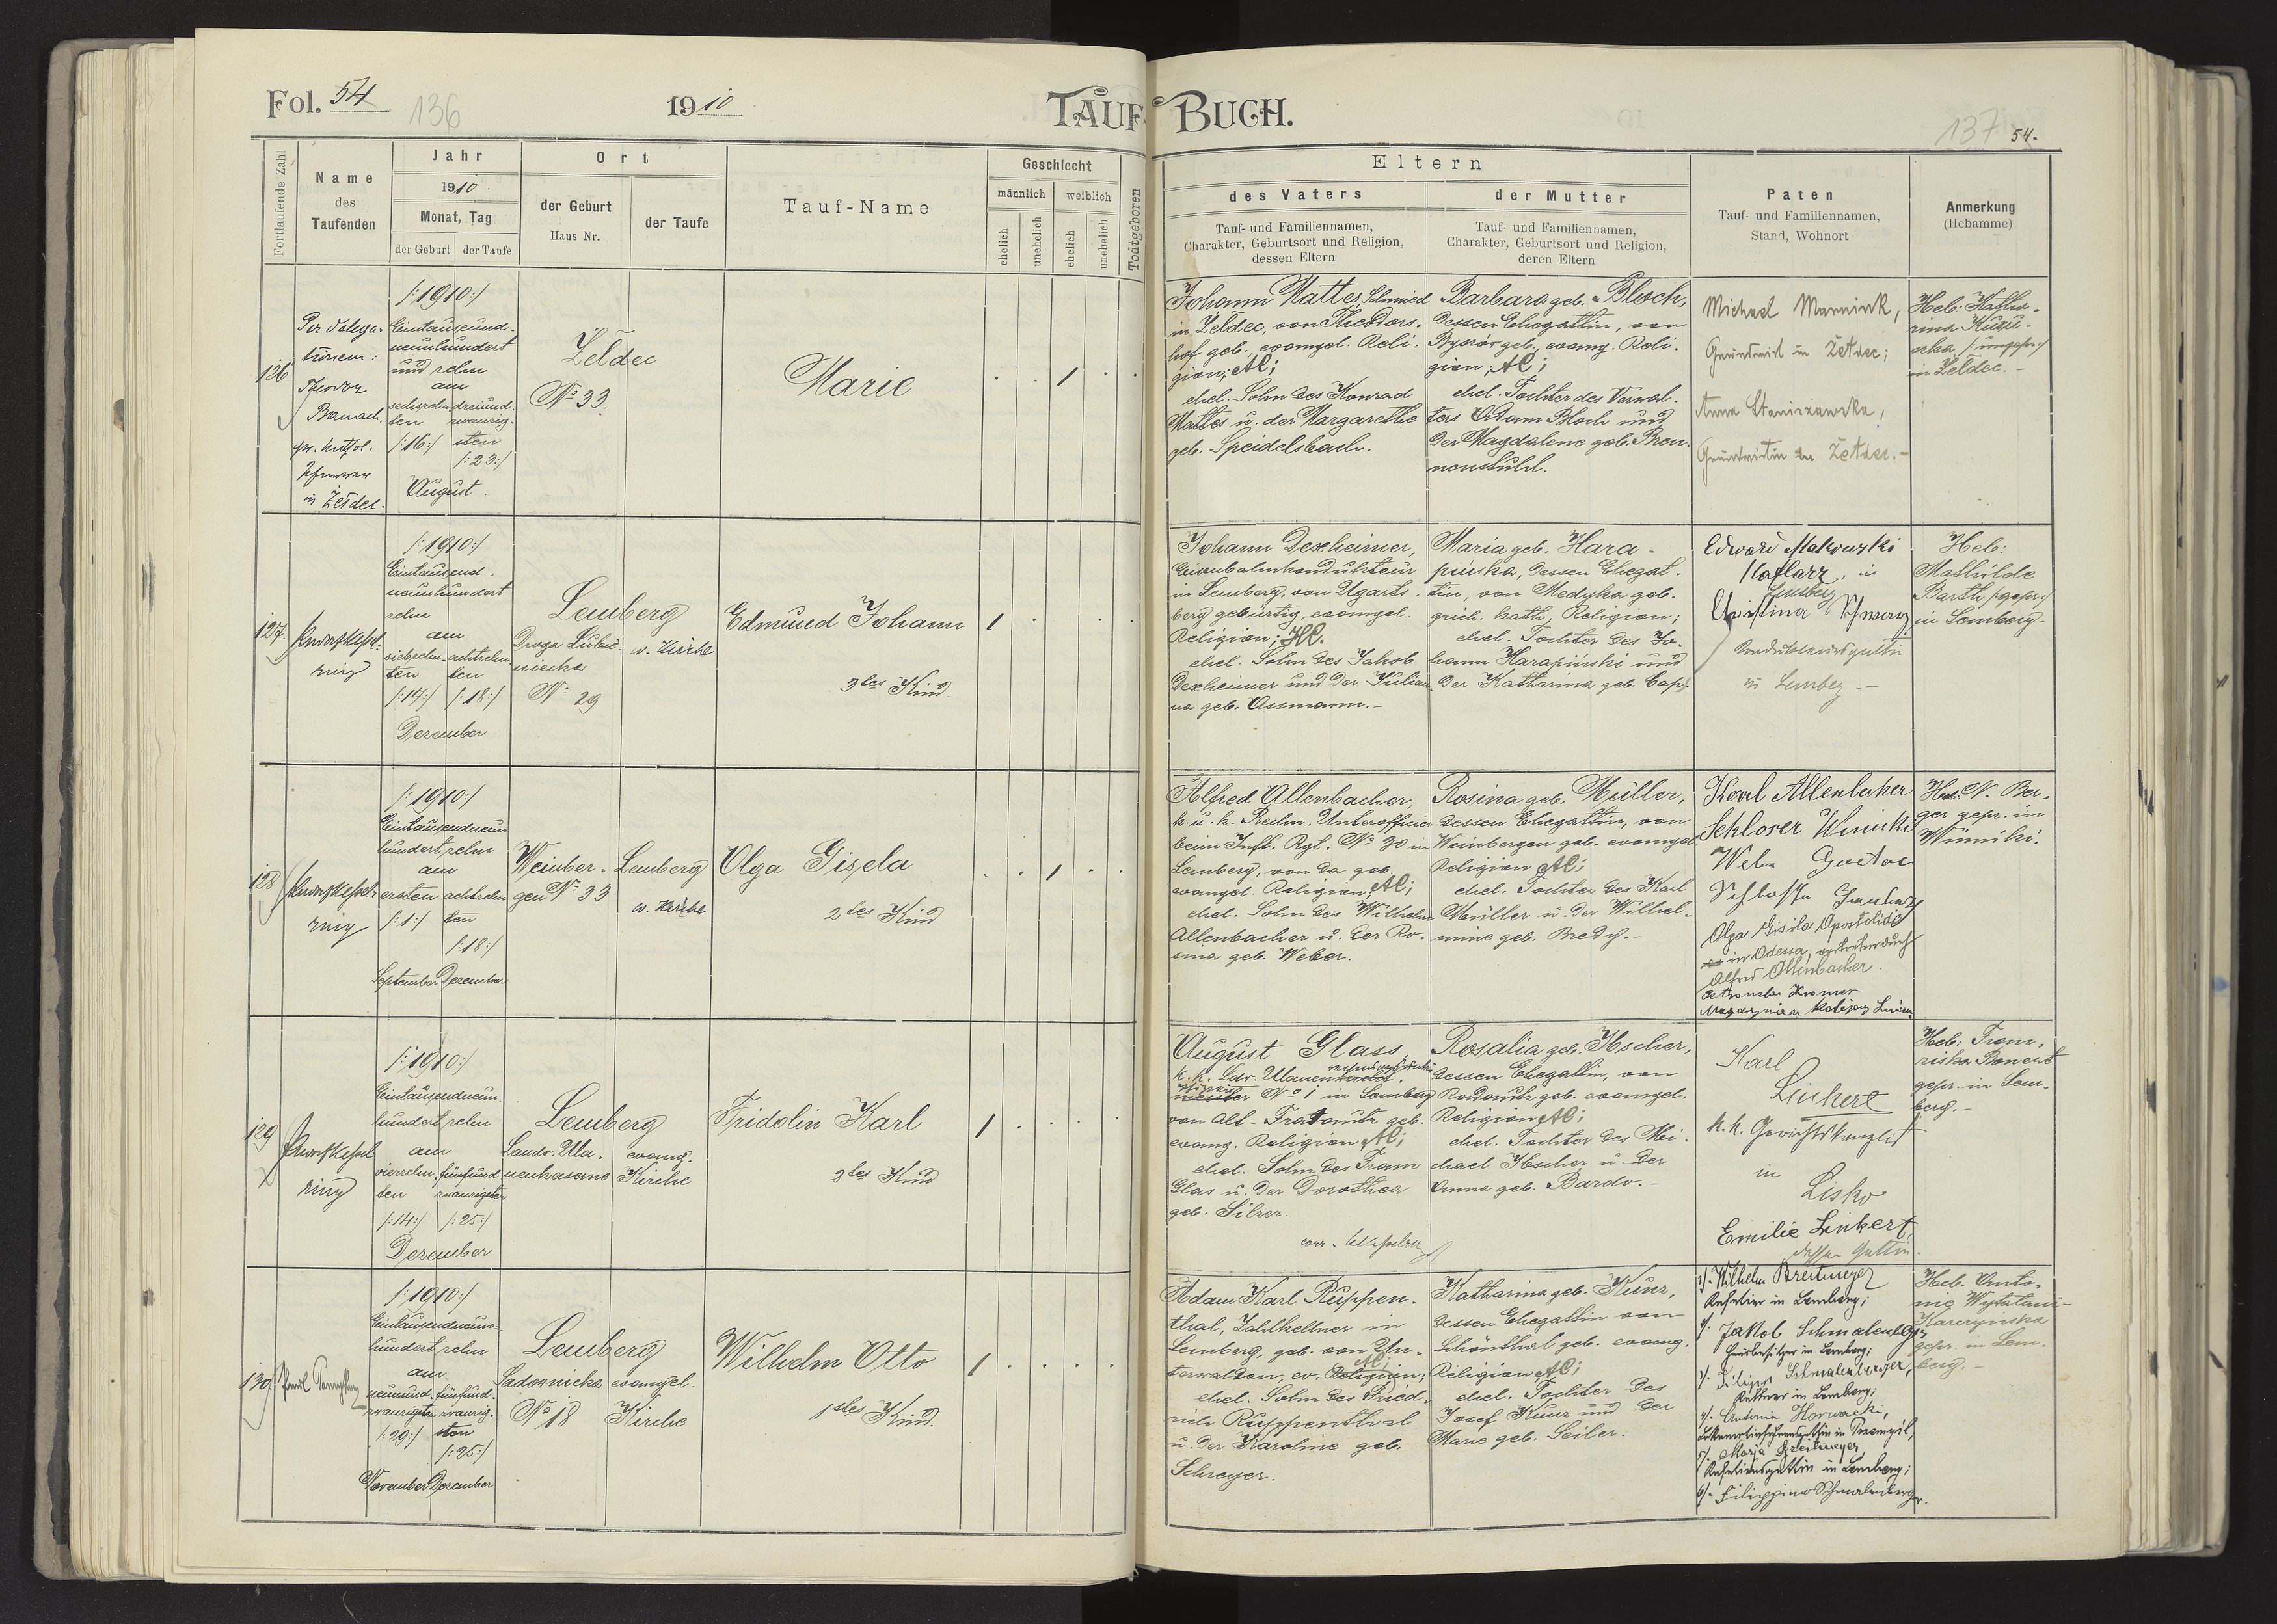 Fol. 54
136
1910
TAUF-BUCH.
137 54.
Fortlaufende Zahl
Name
des
Taufenden
Jahr
1910.
Monat, Tag
der Geburt
der Taufe
Ort
der Geburt
Haus Nr.
der Taufe
Tauf-Name
Geschlecht
männlich
weiblich
ehelich
unehelich
ehelich
unehelich
Todtgeboren
Eltern
des Vaters
Tauf- und Familiennamen,
Charakter, Geburtsort und Religion,
dessen Eltern
der Mutter
Tauf- und Familiennamen,
Charakter, Geburtsort und Religion,
deren Eltern
Paten
Tauf- und Familiennamen,
Stand, Wohnort
Anmerkung
(Hebamme)
126.
Per delega-
tionem:
Theodor
in Żełdec.
/:1910:/
Eintausend-
neunhundert
und zehn
am
sechzehn-
ten
/:16:/
dreiund-
zwanzig-
sten
/:23:/
August.
Żełdec
No 33.
Marie
1
Johann Mattes, Schmied
in Żełdec, von Theodors-
hof geb. evangel. Reli-
gion; AC;
ehel. Sohn des Konrad
Mattes u. der Margarethe
geb. Speidelsbach.
Barbara geb. Bloch,
dessen Ehegattin, von
geb., evang. Reli-
gion, AC;
ehel. Tochter des Verwal-
ters Adam Bloch und
der Magdalene geb. Bren-
nenstuhl.
Michael
Grundwirt in Żełdec;
Anna Staniszewska,
Grundwirtin in Żełdec.-
Heb: Katha-
rina
in Żełdec.-
127.
/:1910:/
Eintausend-
neunhundert
zehn
am
achtzehn-
ten
/:14:/
ten
/:18:/
Dezember
Lemberg
Droga
No 29
w. Kirche
Edmund Johann
3tes Kind.
1
Johann Dexheimer,
Eisenbahnkondukteur
in Lemberg, von Ugarts-
berg gebürtig, evangel.
Religion; HC.
ehel. Sohn des Jakob
Dexheimer und der Julian-
na geb. Assmann.-
Maria geb. Hara-
pińska, dessen Ehegat-
tin, von Medyka geb.
griech. kath. Religion;
ehel. Tochter des Jo-
hann Harapiński und
der Katharina geb. Cap.
Edward Makowski
Kaflarz, in
Lemberg
Christina
Kondukteursgattin
in Lemberg.-
Heb:
Mathilde
Barth /:gepr:/
in Lemberg-
128
/:1910:/
Eintausendneun-
hundert zehn
am
ersten
/:1:/
September
achtzehn-
ten
/:18:/
Dezember
Weinber-
gen No 33
Lemberg
w. Kirche
Olga Gisela
2tes Kind
1
Alfred Allenbacher,
k. u. k. Rechn. Unterofficier
beim Inft. Rgt. No 30 in
Lemberg, von da geb.
evangel. Religion AC;
ehel. Sohn des Wilhelm
Allenbacher u. der Ro-
sina geb. Weber.
Rosina geb. Müller,
dessen Ehegattin, von
Weinbergen geb. evangel.
Religion AC;
ehel. Tochter des Karl
Müller u. der Wilhel-
mine geb. Bredy.-
Karl Allenbacher
Schloser
Olga Gisela
in Odessa, vertreten durch
Alfred Allenbacher.
Heb. N. Ber-
ger gepr. in
Winniki.
129
/:1910:/
Eintausendneun-
hundert zehn
am
vierzehn-
ten
/:14:/
fünfund
zwanzigsten
/:25:/
Dezember
Lemberg
Landw. Ula-
nenkaserne
evang.
Kirche
Fridolin Karl
3tes Kind
1
August Glass
k. k. Ldw. Ulanen
No 1 in Lemberg
von Alt-Fratautz geb.
evang. Religion AC;
ehel. Sohn des Franz
Glas u. der Dorothea
geb. Silzer.
Rosalia geb. Ascher,
dessen Ehegattin, von
Radautz geb. evangel.
Religion AC;
ehel. Tochter des Mi-
chael Ascher u. der
Anna geb. Bardo.-
Karl
Linkert
k. k. Gerichtskanzlist
in
Lisko
Emilie Linkert,
dessen Gattin.
Heb. Fran-
ziska
gepr. in Lem-
berg.-
130.
/:1910:/
Eintausendneun-
hundert zehn
am
neunund-
zwanzigsten
/:29:/
November
fünfund-
zwanzig-
sten
/:25:/
Dezember
Lemberg
Sadownicka
No 18
evangel.
Kirche
Wilhelm Otto
1stes Kind.
1
Adam Karl Ruppen-
thal, Zahlkellner in
Lemberg, geb. von Un-
terwalden, ev. Religion; AC;
ehel. Sohn des Fried-
rich Ruppenthal
u. der Karoline geb.
Schreyer.
Katharina geb. Kunz,
dessen Ehegattin von
Schönthal geb. evang.
Religion AC;
ehel. Tochter des
Josef Kunz und der
Marie geb. Seiler.
1/. Wilhelm Breitmeyer
in Lemberg;
2/. Jakob Schmalenberger
Hausbesitzer in Lemberg;
3/. Filipp Schmalenberger,
in Lemberg;
4/. Antonia Horwacki,
in Przemyśl,
5/. Marja Breitmeyer,
in Lemberg;
6/. Filippina Schmalenberger.
Heb. Anto-
nie
gepr. in Lem-
berg.-